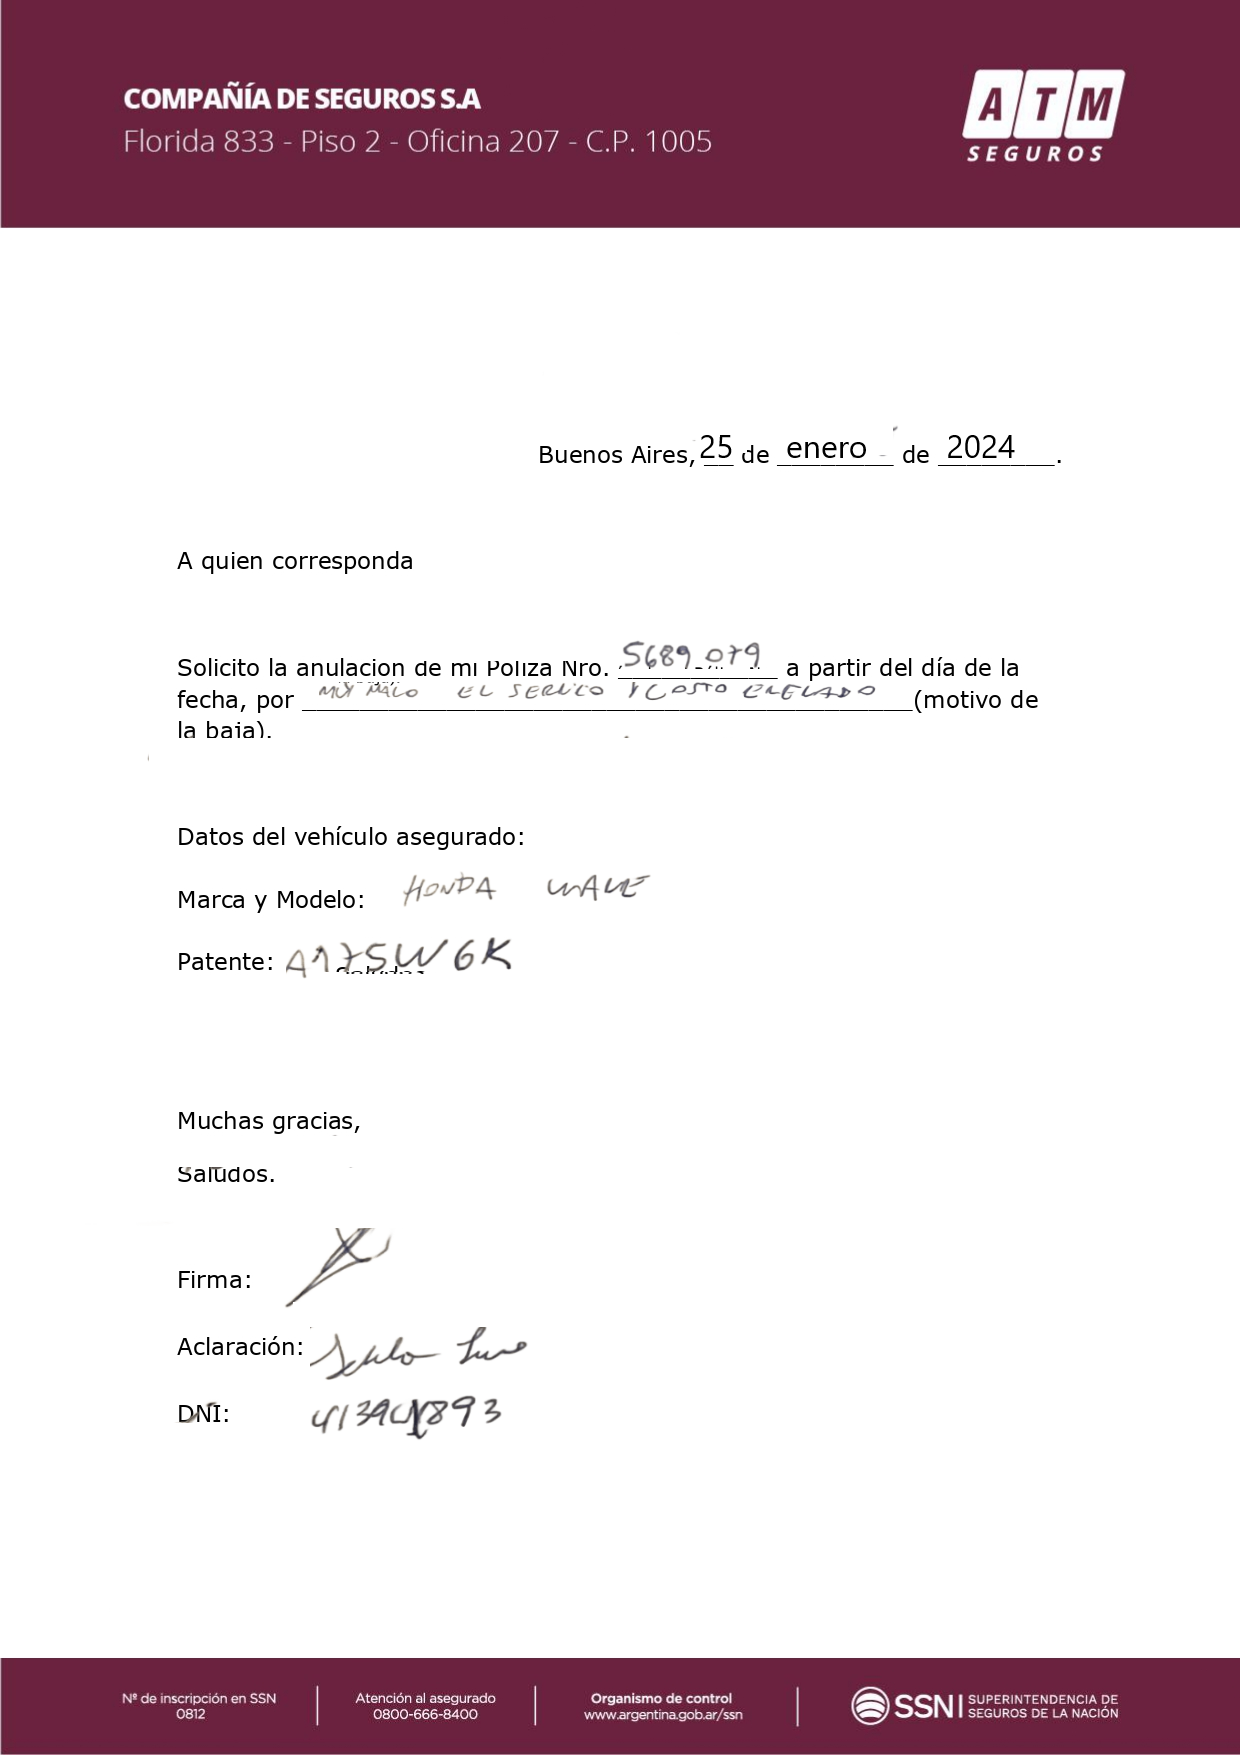 COMPAÑÍA DE SEGUROS S.A
Florida 833 - Piso 2 - Oficina 207 - C.P. 1005
ATM
SEGUROS
Buenos Aires, 25 de enero de 2024.
A quien corresponda
Solicito la anulación de mi Póliza Nro. 5689079 a partir del día de la
fecha, por MUY MALO EL SERVICO Y COSTO ELELADO (motivo de
la baja).
Datos del vehículo asegurado:
Marca y Modelo: HONDA WAVE
Patente: A175WGK
Muchas gracias,
Saludos.
Firma:
Aclaración:
DNI:
Nº de inscripción en SSN
0812
Atención al asegurado
0800-666-8400
Organismo de control
www.argentina.gob.ar/ssn
SSN | SUPERINTENDENCIA DE
SEGUROS DE LA NACIÓN